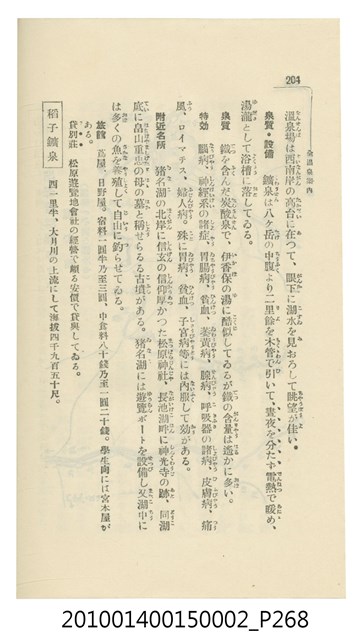 204
全國温泉案內
温泉場は西南岸の高台に在つて、眼下に湖水を見おろして眺望が佳い。
泉質・設備　鑛泉は八ヶ岳の中腹より二里餘を木管で引いて、晝夜を分たず電熱で暖め、
湯瀧として浴槽に落してゐる。
泉質　鐵を含んだ炭酸泉で、伊香保の湯に酷似してゐるが鐵の含量は遙かに多い。
特効　腦病、神經系の諸症、胃腸病、貧血、萎黃病、膣病、呼吸器の諸病、皮膚病、痛
風、ロイマチス、婦人病。殊に胃病、貧血、子宮病等には內服して効がある。
附近名所　猪名湖の北岸に信玄の信仰厚かつた松原神社、長池湖畔に神光寺の跡、同湖
底に畠山重忠の母の墓と稱せらるる古墳がある。猪名湖には遊覽ボートを設備し又湖中に
は多くの魚を養殖して自由に釣らせてゐる。
旅館　蔦屋、日野屋。宿料一圓半乃至三圓、中食料八十錢乃至一圓二十錢。學生向には宮本屋が
ある。
貸別莊　松原遊覽地會社の經營で頗る安價で貸與してゐる。
稻子鑛泉　四一里半、大月川の上流にして海拔四千九百五十尺。
201001400150002_P268